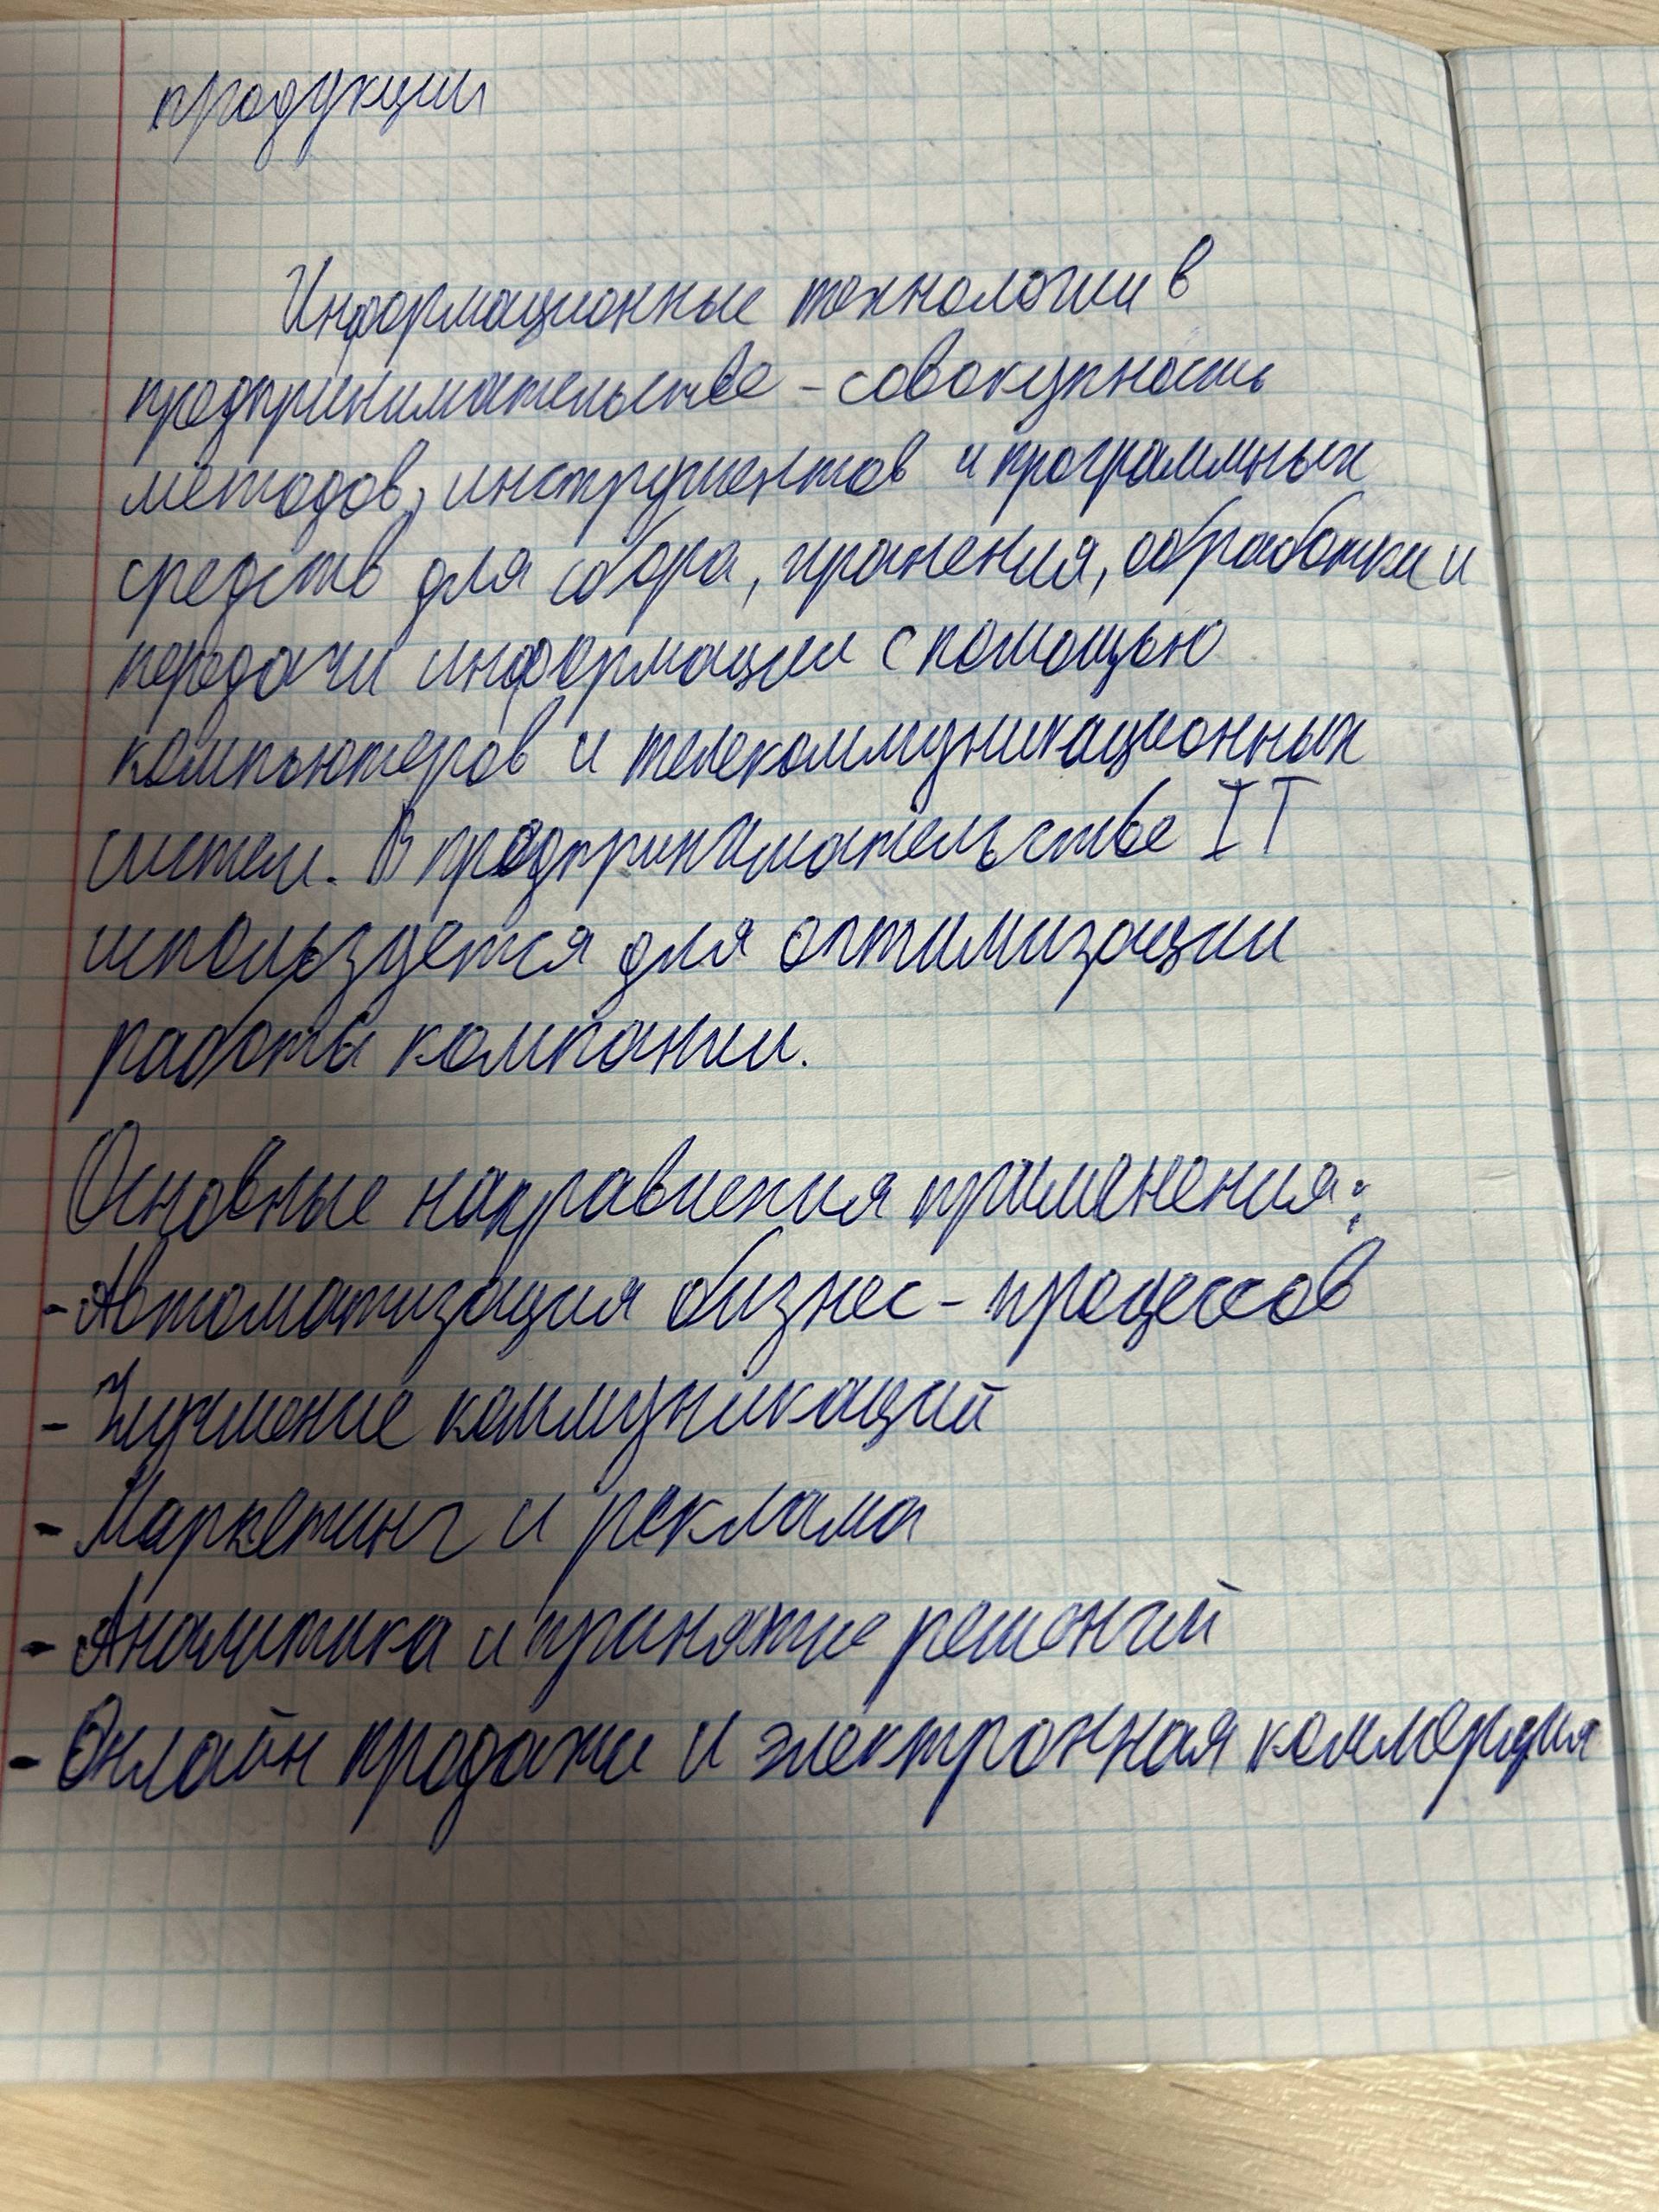 продукции
Информационные технологии в
предпринимательстве - совокупность
методов, инструментов и программных
средств для сбора, хранения, обработки и
передачи информации с помощью
компьютеров и телекоммуникационных
систем. В предпринимательстве IT
используется для оптимизации
работы компании.
Основные направления применения:
- Автоматизация бизнес - процессов
- Улучшение коммуникаций
- Маркетинг и реклама
- Аналитика и принятие решений
- Онлайн продажи и электронная коммерция